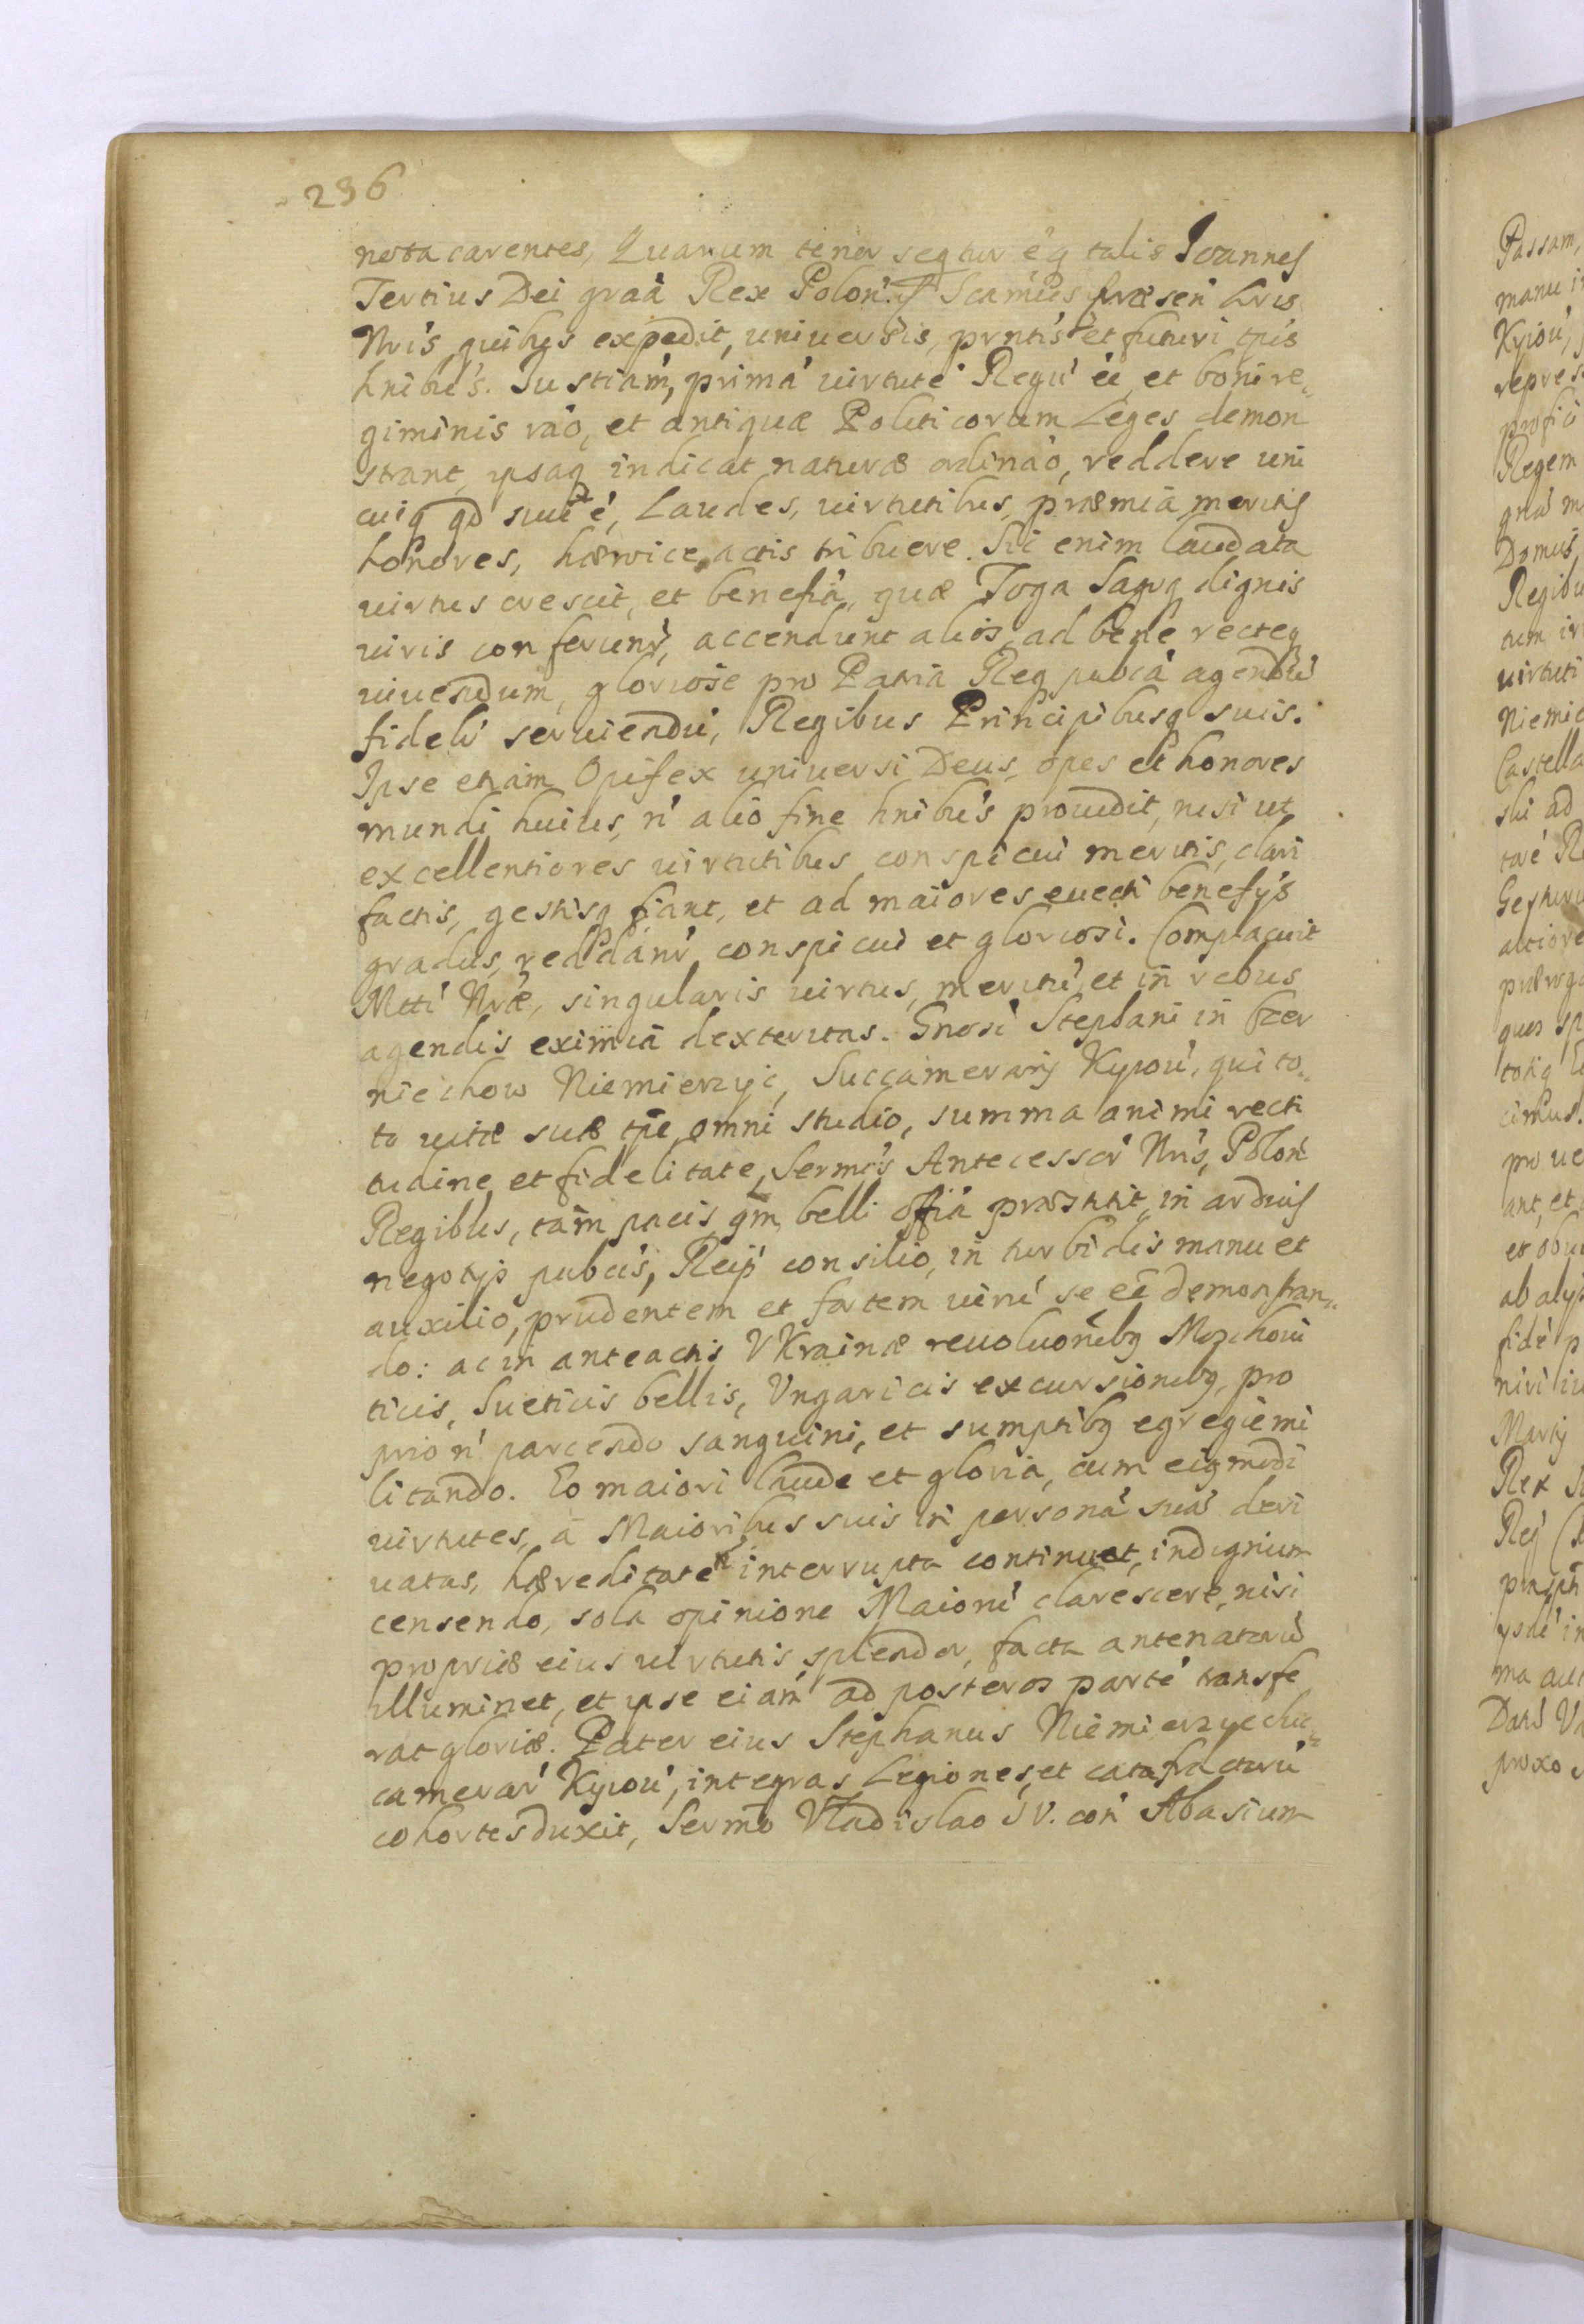 236
nota carentes, Quarum tenor seqtur e'q talis Joannes
Tertius Dei graa Rex Polon'. Scamus præsen lris
Nris quibus expedit, uniuersis, pntis et futuri tpis
hnibus. Justiam, prima' uirtute' Regu' ee, et boni re„
giminis rao, et antiquæ Politicorum Leges demon
strant, ipsaq indicat naturæ ordinao, reddere uni
cuiq qd suu e', Laudes, uirtutibus, præmia meritis
honores, hæroice actis tribuere. Sic enim laudata
uirtus crescit, et benefia, quæ Toga Sagoq dignis
uiris conferunr, accendunt alios, ad bene recteq
uiuendum, gloriose pro Patria Req pubca agendu'
fideli' seruiendu', Regibus Principibusq suis.
Ipse etiam Opifex uniuersi Deus, opes et honores
mundi huius, n' alio fine hnibus prouidit, nisi ut
excellentiores uirtutibus conspicui meritis, clari
factis, gestisq fiant, et ad maiores euecti benefijs
gradus, reddanr conspicui et gloriosi. Complacuit
Mtti Nræ, singularis uirtus, meritu', et in rebus
agendis eximia dexteritas. Gnosi Stephani in Czer
niechow Niemierzyc, Succamerarij Kyiou', qui to„
to uitæ suæ tpe, omni studio, summa animi recti
tudine et fidelitate, Sermis Antecessor' Nris, Polon'
Regibus, tam pacis qm belli offia præstitit, in arduis
negotijs pubcis, Reip' consilio, in turbidis manu et
auxilio, prudentem et fortem uiru' se ee demonstran„
do: ac in anteactis Vkrainæ reuoluonibq Mozchoui
ticis, Sueticis bellis, Ungaricis excursionibq, pro
prio n' parcendo sanguini, et sumptibq egregie mi
litando. Eo maiori laude et gloria, cum eiqmodi
uirtutes, a Maioribus suis in persona' sua' deri
uatas, hæreditate interrupta continuet, indignum
censendo, sola opinione Maioru' clarescere, nisi
propriæ eius uirtutis splendor, facta antenatoru'
illuminet, et ipse eiam ad posteros parte' transfe
rat gloriæ. Pater eius Stephanus Niemierzyc
camerar' Kyiou', integras Legiones, et catafractoru'
cohortes duxit, Sermo Vladislao IV. con' Abasium